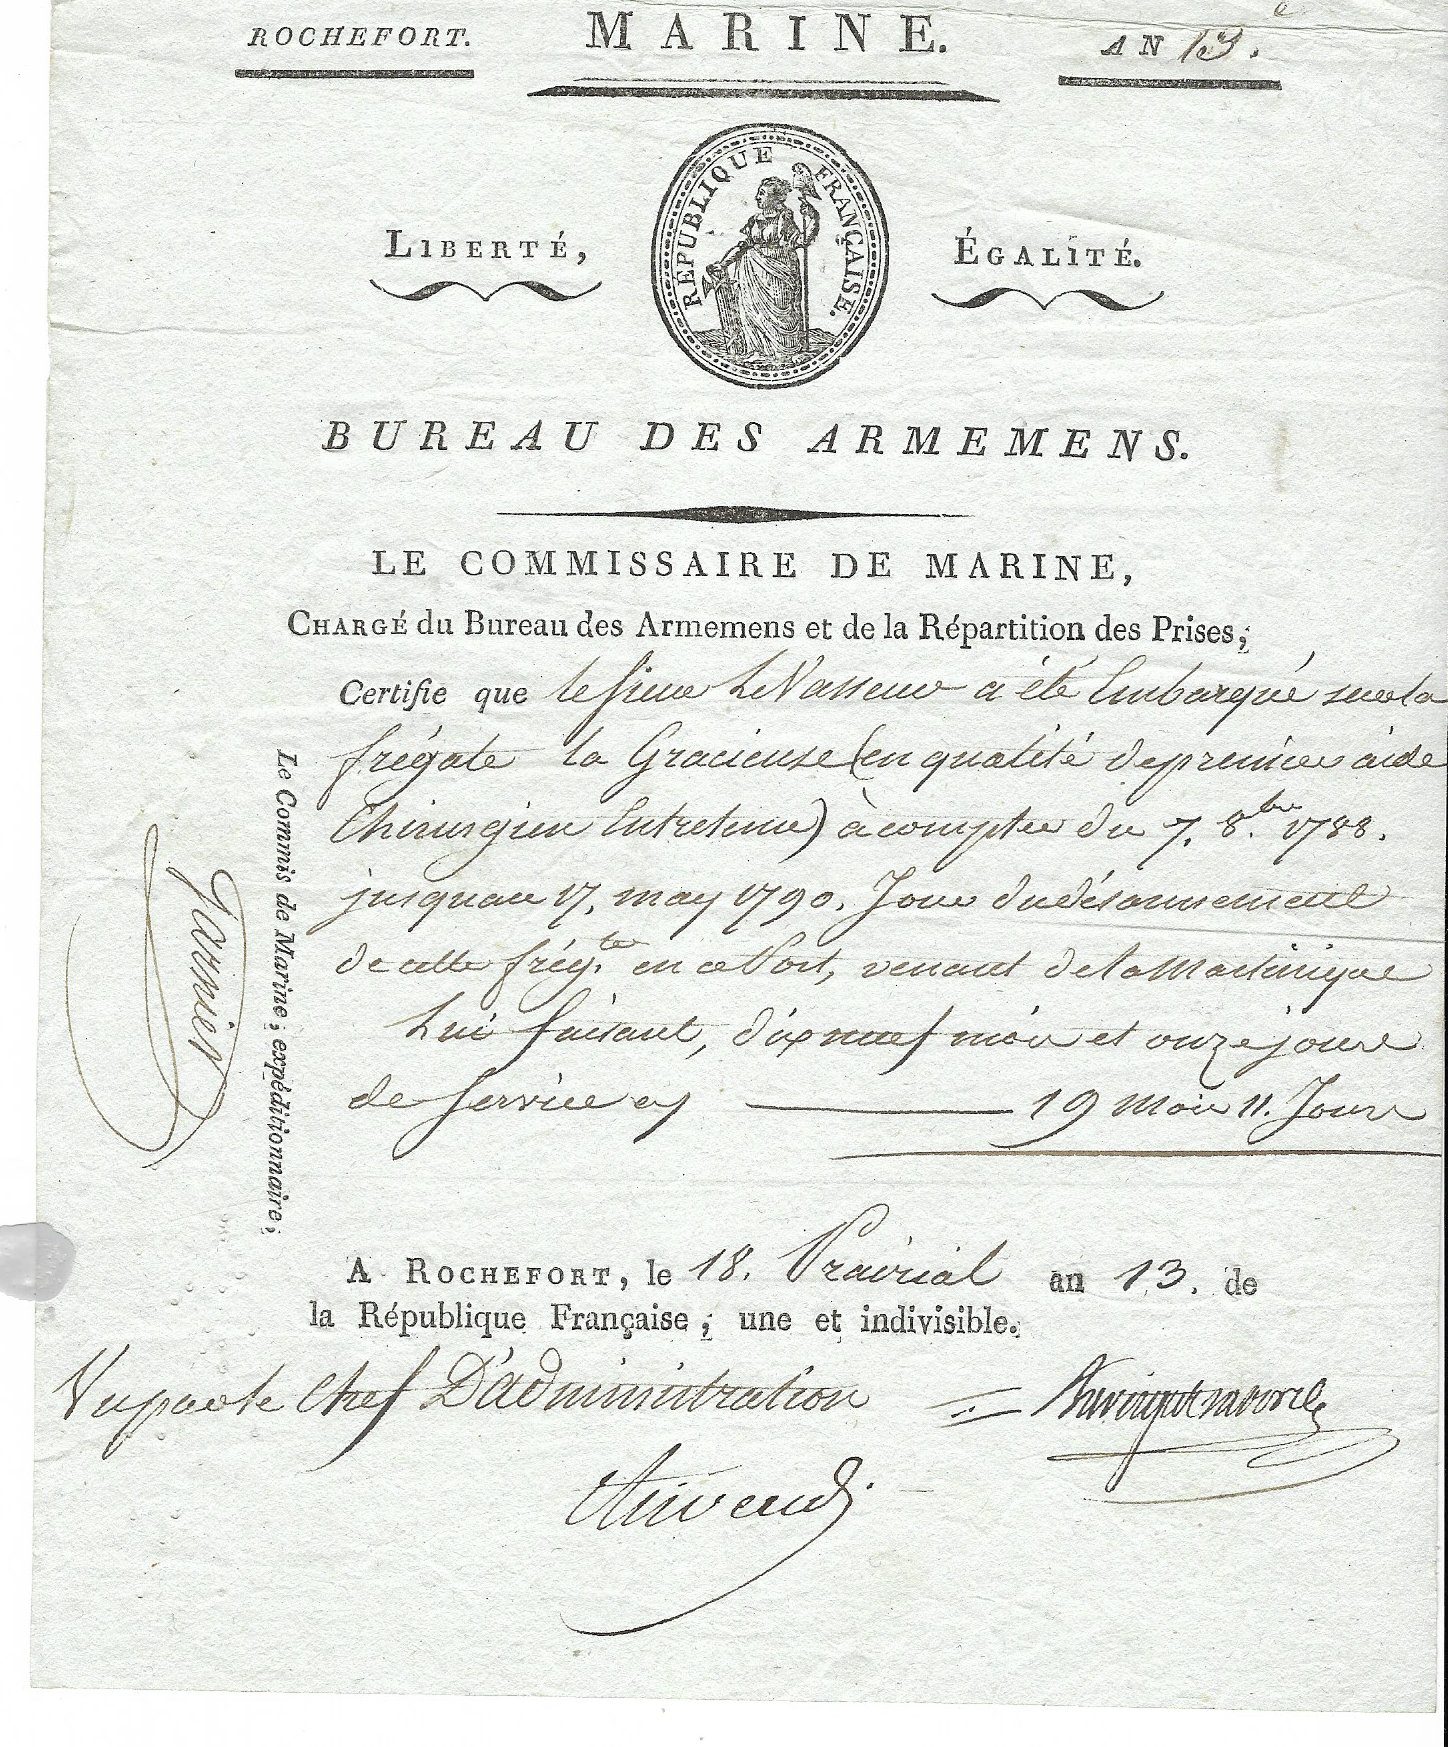 ROCHEFORT. MARINE. AN 13.e
LIBERTÉ, RÉPUBLIQUE FRANÇAISE. ÉGALITÉ.
BUREAU DES ARMEMENS.
LE COMMISSAIRE DE MARINE,
CHARGÉ du Bureau des Armemens et de la Répartition des Prises;
Certifie que le Sieur Le Vasseur a été Embarqué sur la
frégate la Gracieuse (en qualité de premier aide
Chirurgien Entretenu) à compter du 7. 8.bre 1788.
jusqu'au 17. may 1790. Jour du désarmement
de cette frég.te en ce Port, venant de la Martinique
Lui faisant, dix neuf mois et onze jours
de Service cy 19 Mois 11. Jours
Le Commis de Marine; expéditionnaire;
Garnier
A ROCHEFORT, le 18. Prairial an 13. de
la République Française; une et indivisible.
Vu par le Chef D'administration